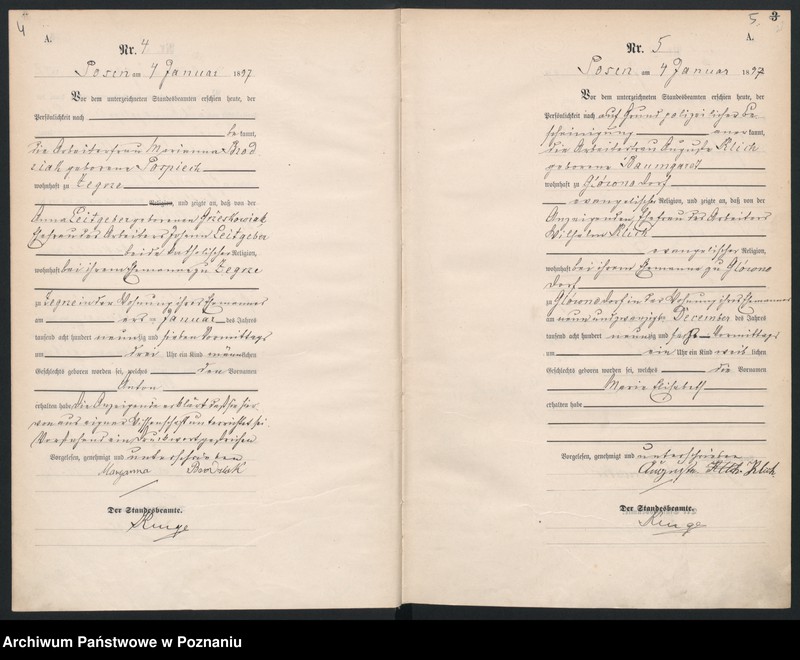 4
A.
Nr. 4
Posen am 4 Januar 1897
Vor dem unterzeichneten Standesbeamten erschien heute, der
Persönlichkeit nach
be kannt,
die Arbeiterfrau Marianna
geborene Pospiech
wohnhaft zu Zegrze
Religion, und zeigte an, daß von der
Anna Leitgeber geborenen Grzeskowiak
Ehefrau des Arbeiters Johann Leitgeber
beide katholischer Religion,
wohnhaft bei ihrem Ehemanne zu Zegrze
zu Zegrze in der Wohnung ihres Ehemannes
am ersten Januar des Jahres
tausend acht hundert neunzig und sieben Vormittags
um drei Uhr ein Kind männlichen
Geschlechts geboren worden sei, welches den Vornamen
Anton
erhalten habe Die Anzeigende erklärt daß sie hier
von aus eigner Wissenschaft unterrichtet sei.
Vorstehend ein Druckwort gestrichen.
Vorgelesen, genehmigt und unterschrieben
Maryanna
Der Standesbeamte.
5. 3
A.
Nr. 5
Posen am 4 Januar 1897
Vor dem unterzeichneten Standesbeamten erschien heute, der
Persönlichkeit nach auf Grund polizeilicher Be
scheinigung aner kannt,
die Arbeiterfrau Auguste Klich
geborene Baumgart
wohnhaft zu Glówno Dorf
evangelischer Religion, und zeigte an, daß von der
Anzeigenden, Ehefrau des Arbeiters
Wilhelm Klich
evangelischer Religion,
wohnhaft bei ihrem Ehemanne zu Glówno
Dorf
zu Glówno Dorf in der Wohnung ihres Ehemannes
am neun und zwanzigsten December des Jahres
tausend acht hundert neunzig und sechs Vormittags
um ein Uhr ein Kind weib lichen
Geschlechts geboren worden sei, welches die Vornamen
Marie Elisabeth
erhalten habe
Vorgelesen, genehmigt und unterschrieben
Auguste Klich
Der Standesbeamte.
Archiwum Państwowe w Poznaniu